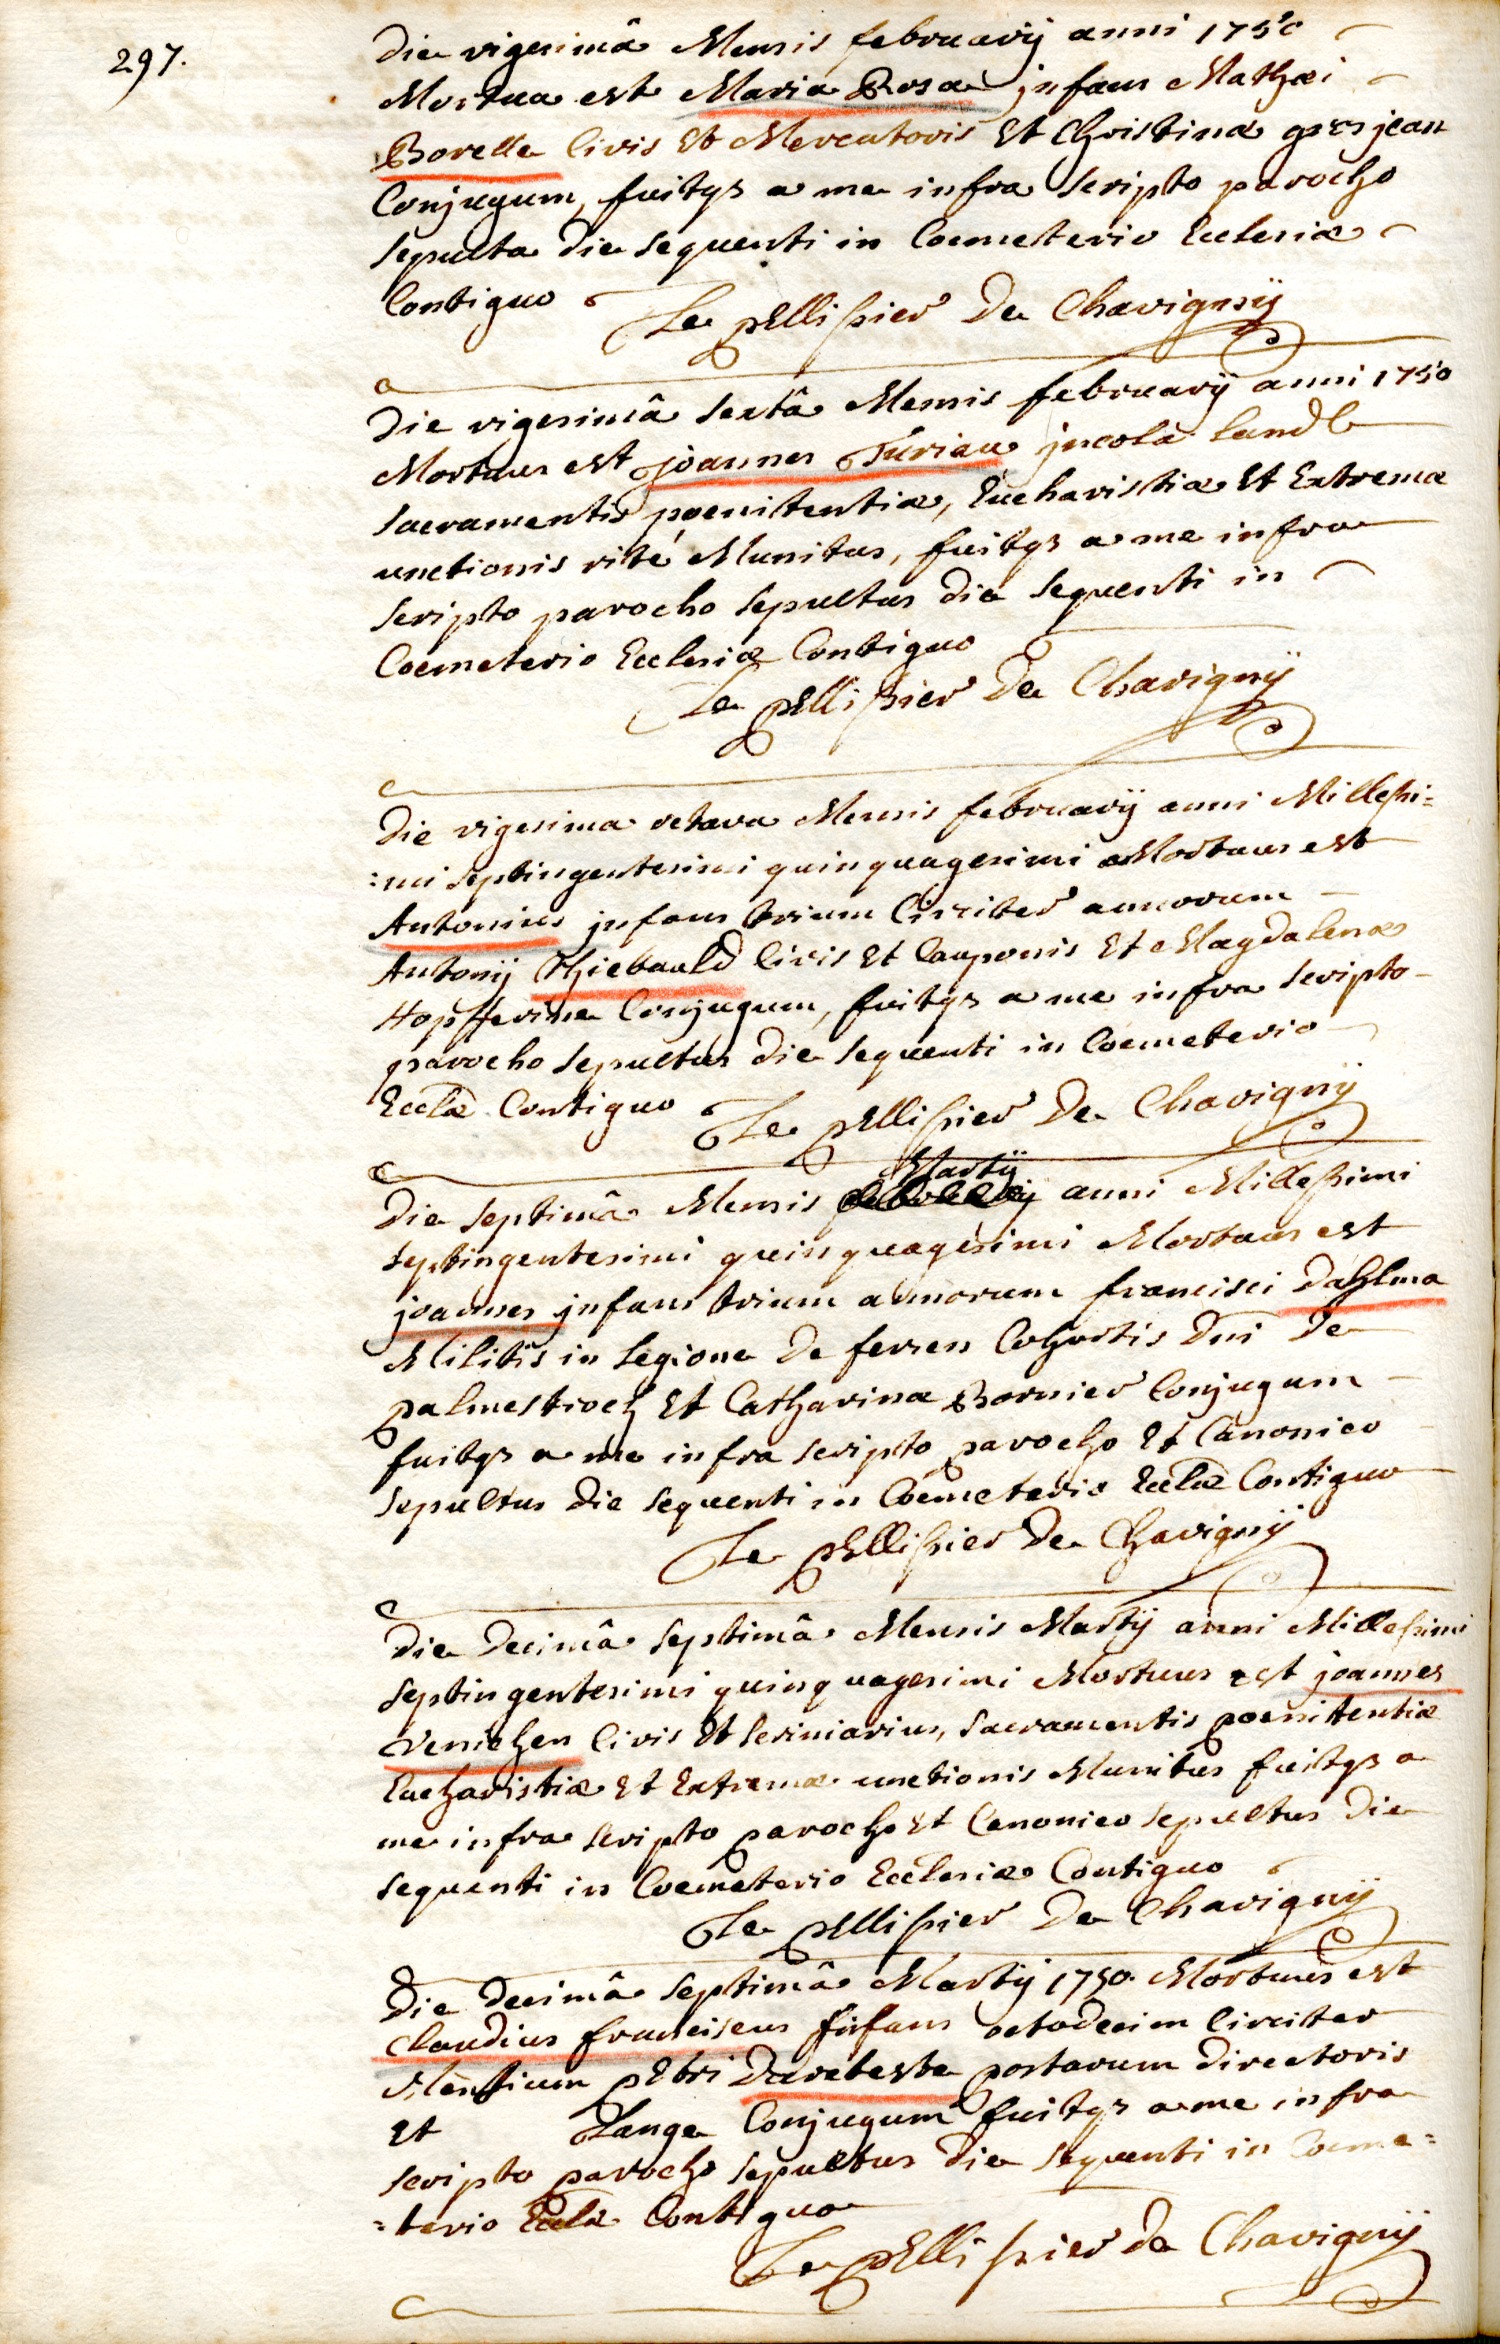 297.
Die vigesimâ Mensis februarij anni 1750
Mortua est Maria Rosa jnfans Mathæi
Borelle Civis Et Mercatoris Et Christinæ grosjean
Conjugum, fuitqȝ a me infra scripto parocho
sepulta die sequenti in Coemeterio Ecclesiæ
Contiguo
Le pellissier De Chavignÿ
Die vigesimâ sextâ Mensis februarÿ anni 1750
Mortuus est joannes Turiau jncola Land
sacramentis poenitentiæ, Eucharistiæ Et Extremæ
unctionis rité Munitus, fuitqȝ a me infra
scripto parocho sepultus die sequenti in
Coemeterio Ecclesiæ Contiguo
Le pellissier De Chavignÿ
Die vigesima octava Mensis februarÿ anni Millessi=
=mi septingentesimi quinquagesimi Mortuus est
Antonius jnfans trium Circiter annorum
Antonij Thiebauld Civis Et Cauponis Et Magdalenæ
Hopfferine Conjugum, fuitqȝ a me infra scripto
parocho sepultus die sequenti in Coemeterio
Ecclæ Contiguo Le pellissier De Chavignÿ
Die septimâ Mensis Martÿ anni Millessimi
septingentesimi quinquagesimi Mortuus est
joannes jnfans trium annorum francisci Dahlma
Militis in Legione De fersen Cohortis Dni De
palmestroch Et Catharinæ Bornier Conjugum
fuitqȝ a me infra scripto parocho Et Canonico
sepultus die sequenti in Coemeterio Ecclæ Contiguo
Le pellissier De Chavignÿ
Die Decimâ septimâ Mensis Martÿ anni Millessimi
septingentesimi quinquagesimi Mortuus est joannes
Venichen Civis Et scriniarius, sacramentis poenitentiæ
Eucharistiæ Et Extremæ unctionis Munitus fuitqȝ a
me infra scripto parocho Et Canonico sepultus die
sequenti in Coemeterio Ecclesiæ Contiguo
Le pellissier De Chavignÿ
Die Decimâ septimâ Martÿ 1750. Mortuus est
Claudius franciscus jnfans octodecim Circiter
Mensium petri Dareteste postarum directoris
Et Lange Conjugum fuitqȝ a me infra
scripto parocho sepultus die sequenti in Coeme=
=terio Ecclæ Contiguo
Le pellissier de Chavignÿ